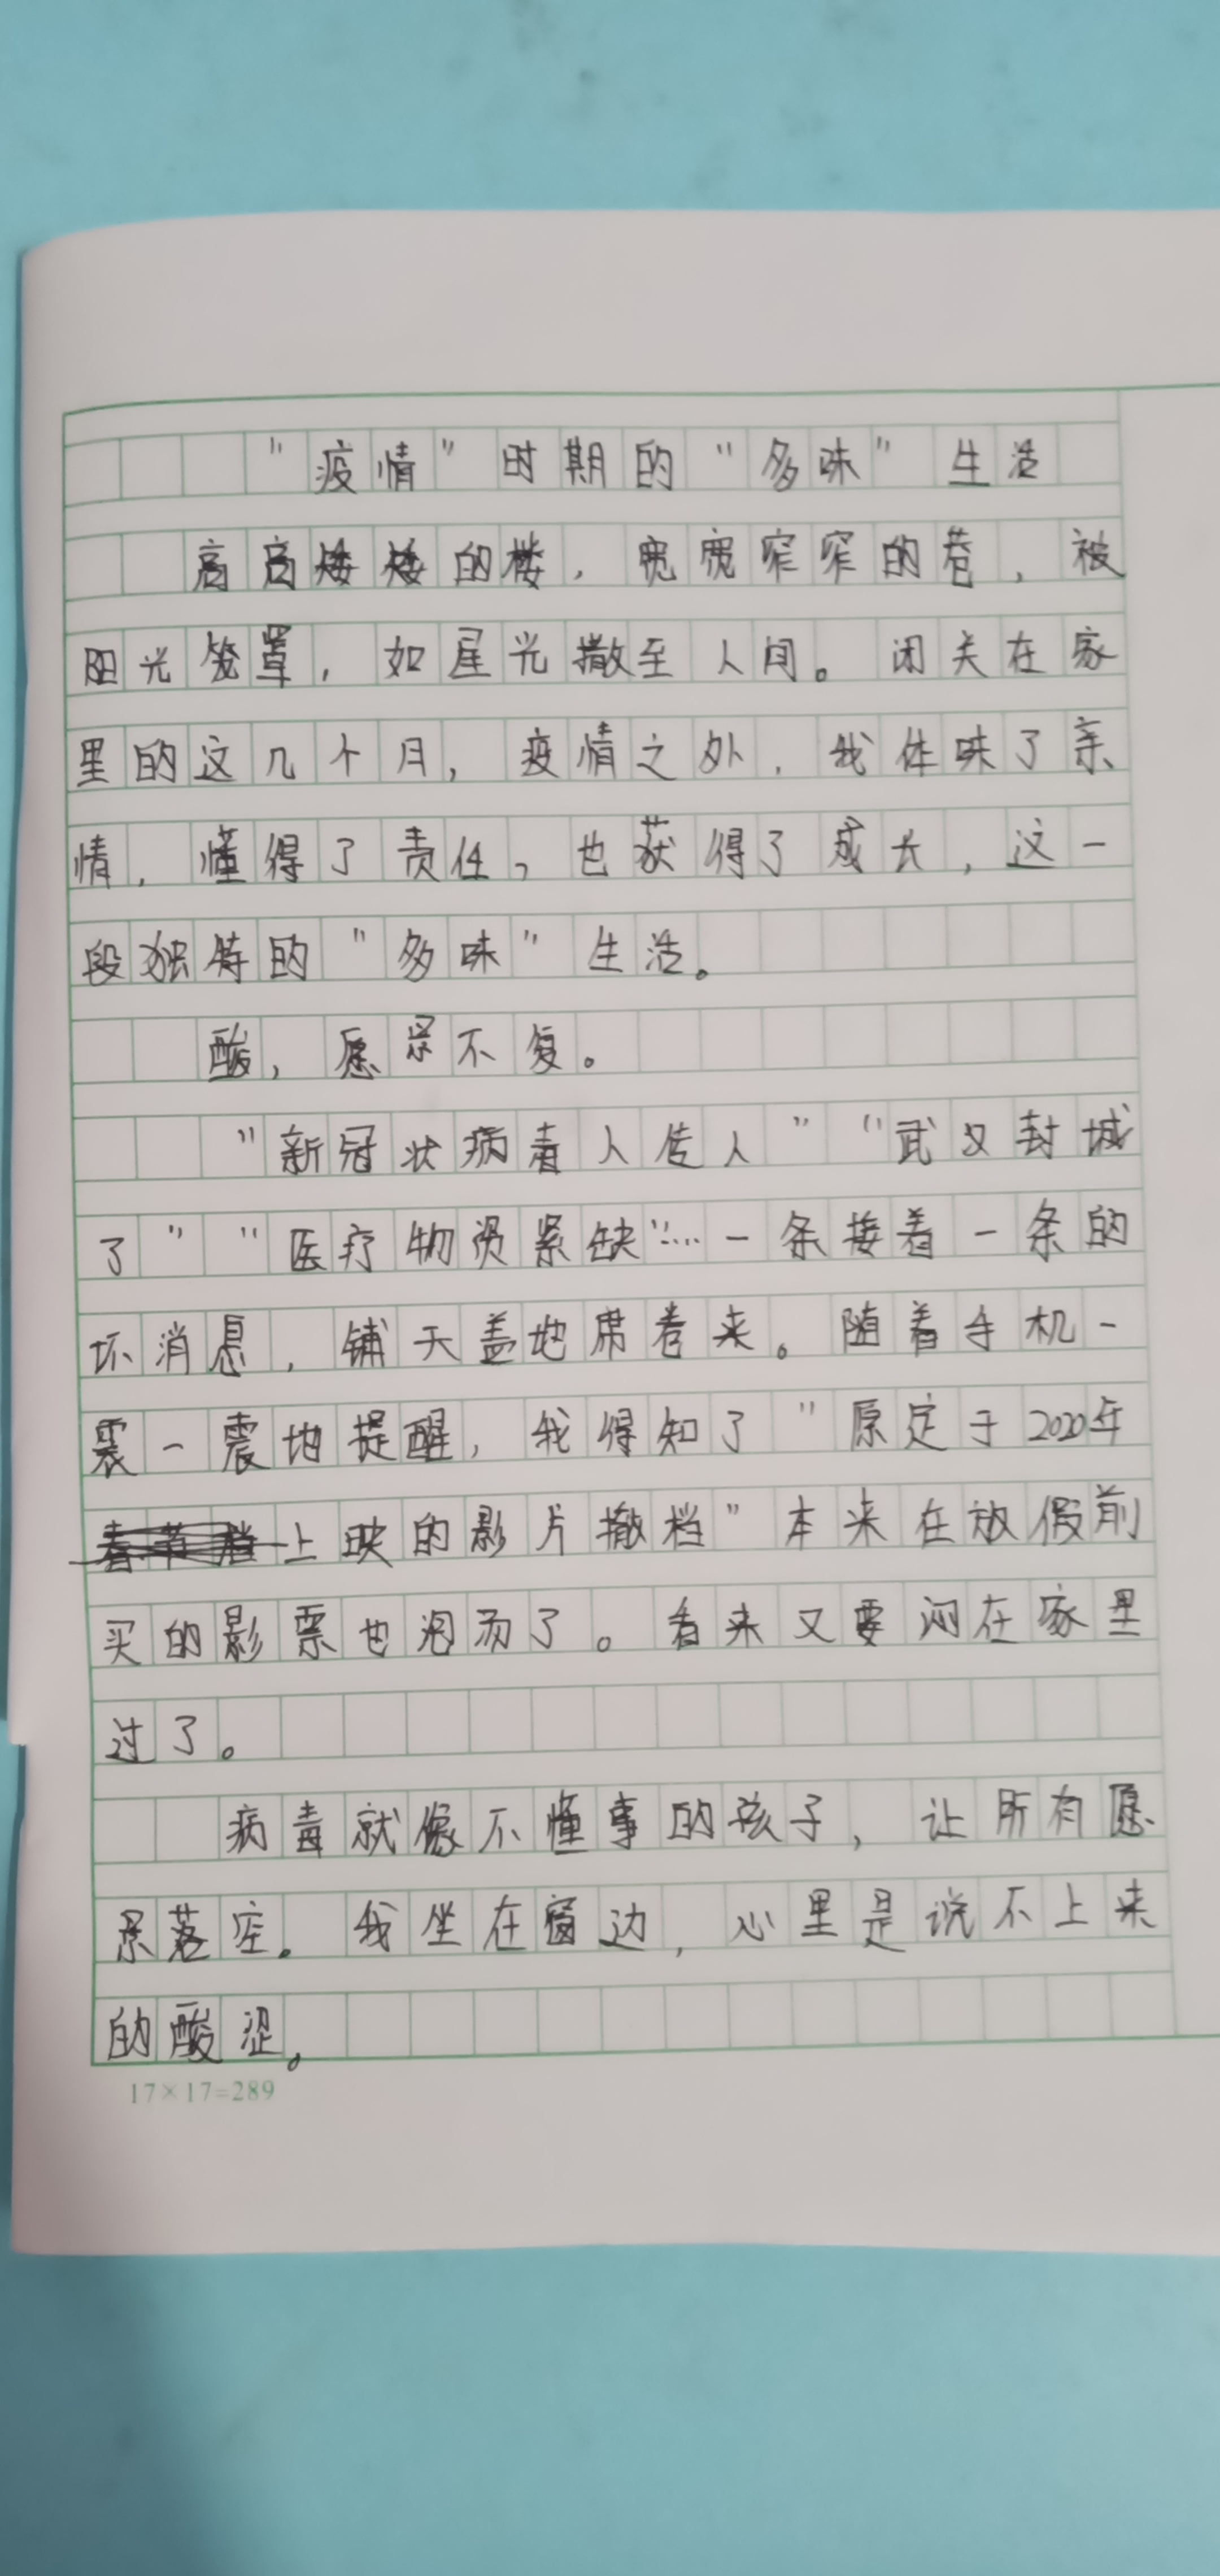 “疫情”时期的“多味”生活
高高矮矮的楼，宽宽窄窄的巷，被
阳光笼罩，如星光撒至人间。闭关在家
里的这几个月，疫情之外，我体味了亲
情，懂得了责任，也获得了成长，这一
段独特的“多味”生活。
酸，愿景不复。
“新冠状病毒人传人”“武汉封城
了”“医疗物资紧缺”…一条接着一条的
坏消息，铺天盖地席卷来。随着手机一
震一震地提醒，我得知了“原定于2020年
上映的影片撤档”本来在放假前
买的影票也泡汤了。看来又要闷在家里
过了。
病毒就像不懂事的孩子，让所有愿
景落空。我坐在窗边，心里是说不上来
的酸涩。
17×17=289